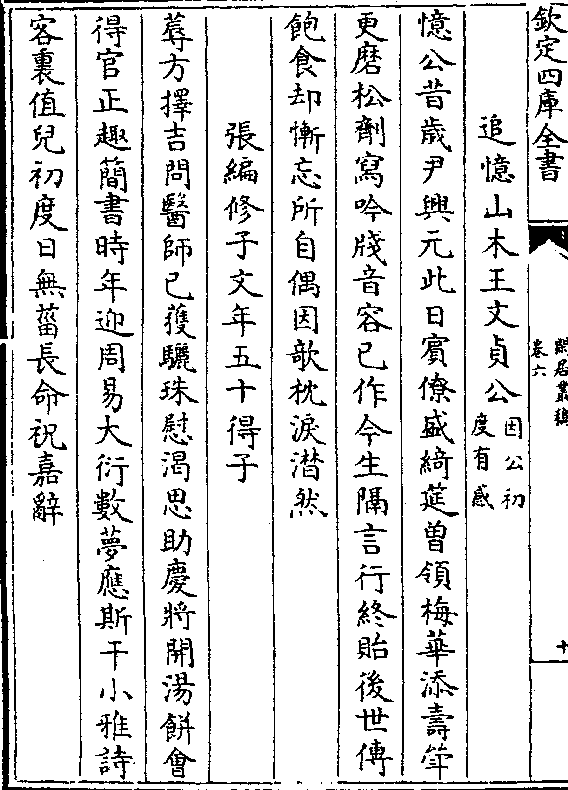 欽定四庫全書
閒居叢稿
卷六
十
追憶山木王文貞公因公初度有感
憶公昔歳尹興元此日賓僚盛綺筵曽領梅華添壽筭
更磨松劑寫吟牋音容已作今生隔言行終貽後世傳
飽食却慚忘所自偶因欹枕淚潸然
張編修子文年五十得子
蓐方擇吉問醫師已獲驪珠慰渴思助慶將開湯餅會
得官正趣簡書時年迎周易大衍數夢應斯干小雅詩
客裏值兒初度日無菑長命祝嘉辭